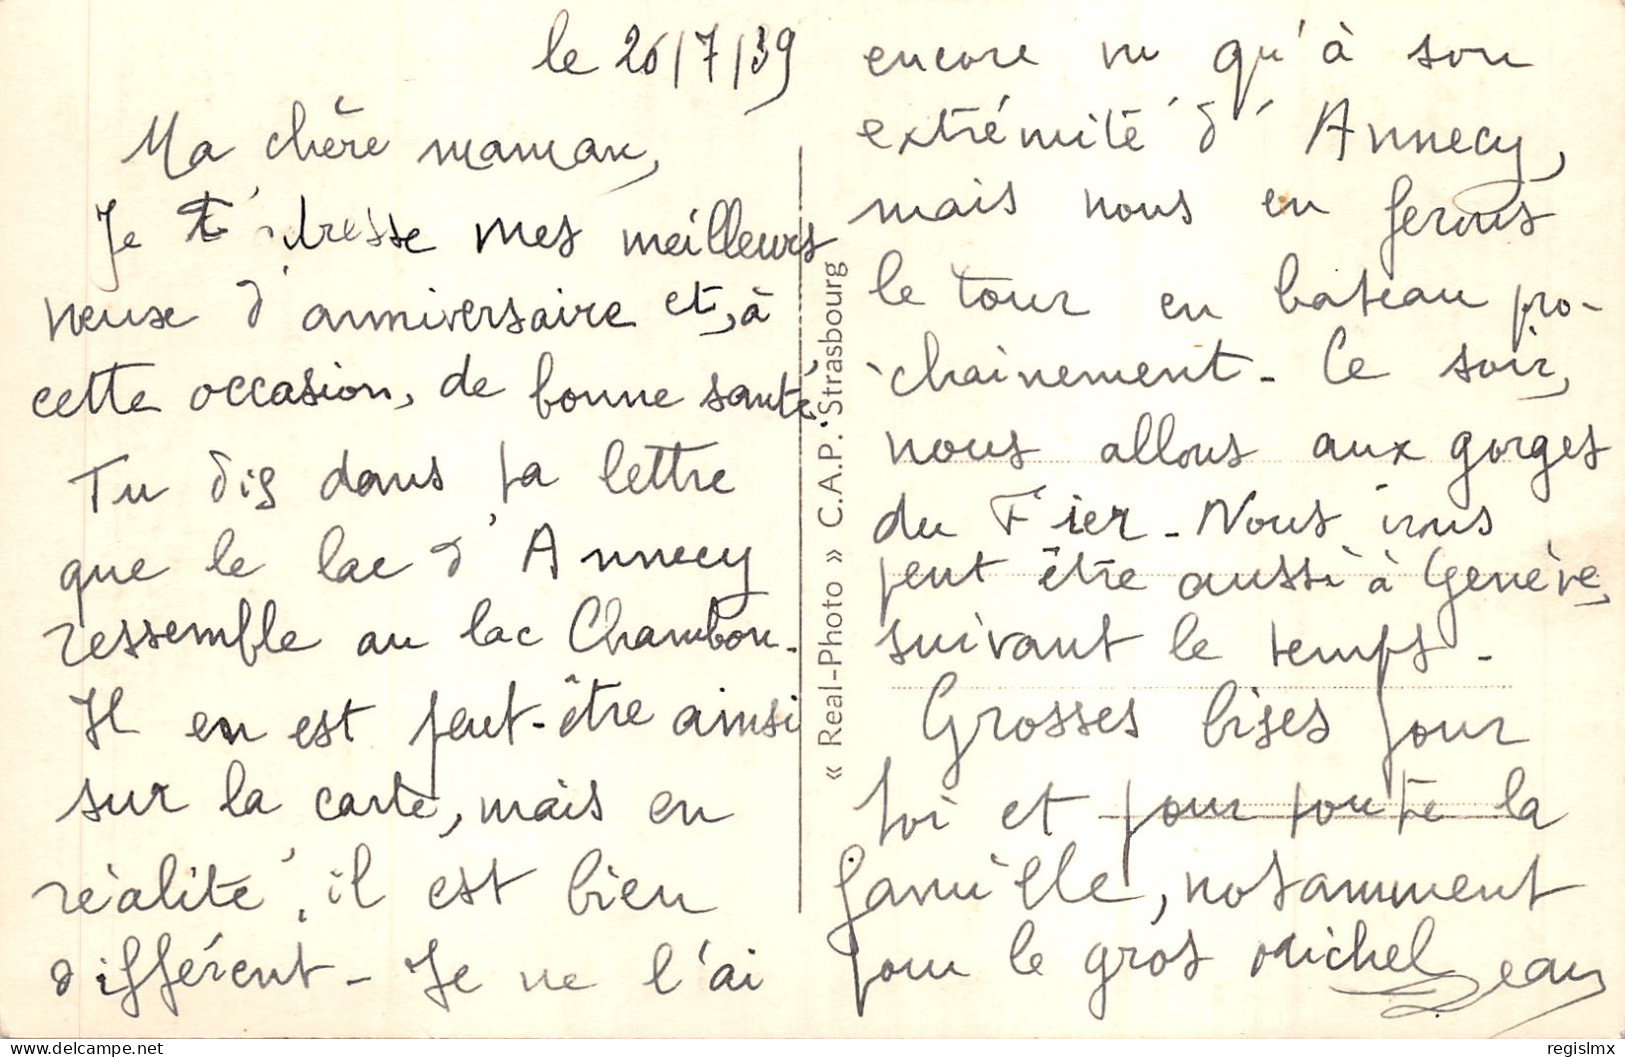 le 26/7/39
Ma chère maman,
Je t'adresse mes meilleurs
vœux d'anniversaire et, à
cette occasion, de bonne santé.
Tu dis dans ta lettre
que le lac d'Annecy
ressemble au lac Chambon.
Il en est peut-être ainsi
sur la carte, mais en
réalité, il est bien
différent - Je ne l'ai
encore vu qu'à son
extrémité d'Annecy,
mais nous en ferons
le tour en bateau pro-
chainement - Ce soir,
nous allons aux gorges
du Fier - Nous irons
peut être aussi à Genève,
suivant le temps -
Grosses bises pour
toi et pour toute la
famille, notamment
pour le gros Michel
Jean
« Real-Photo » C.A.P. Strasbourg
www.delcampe.net
regislmx